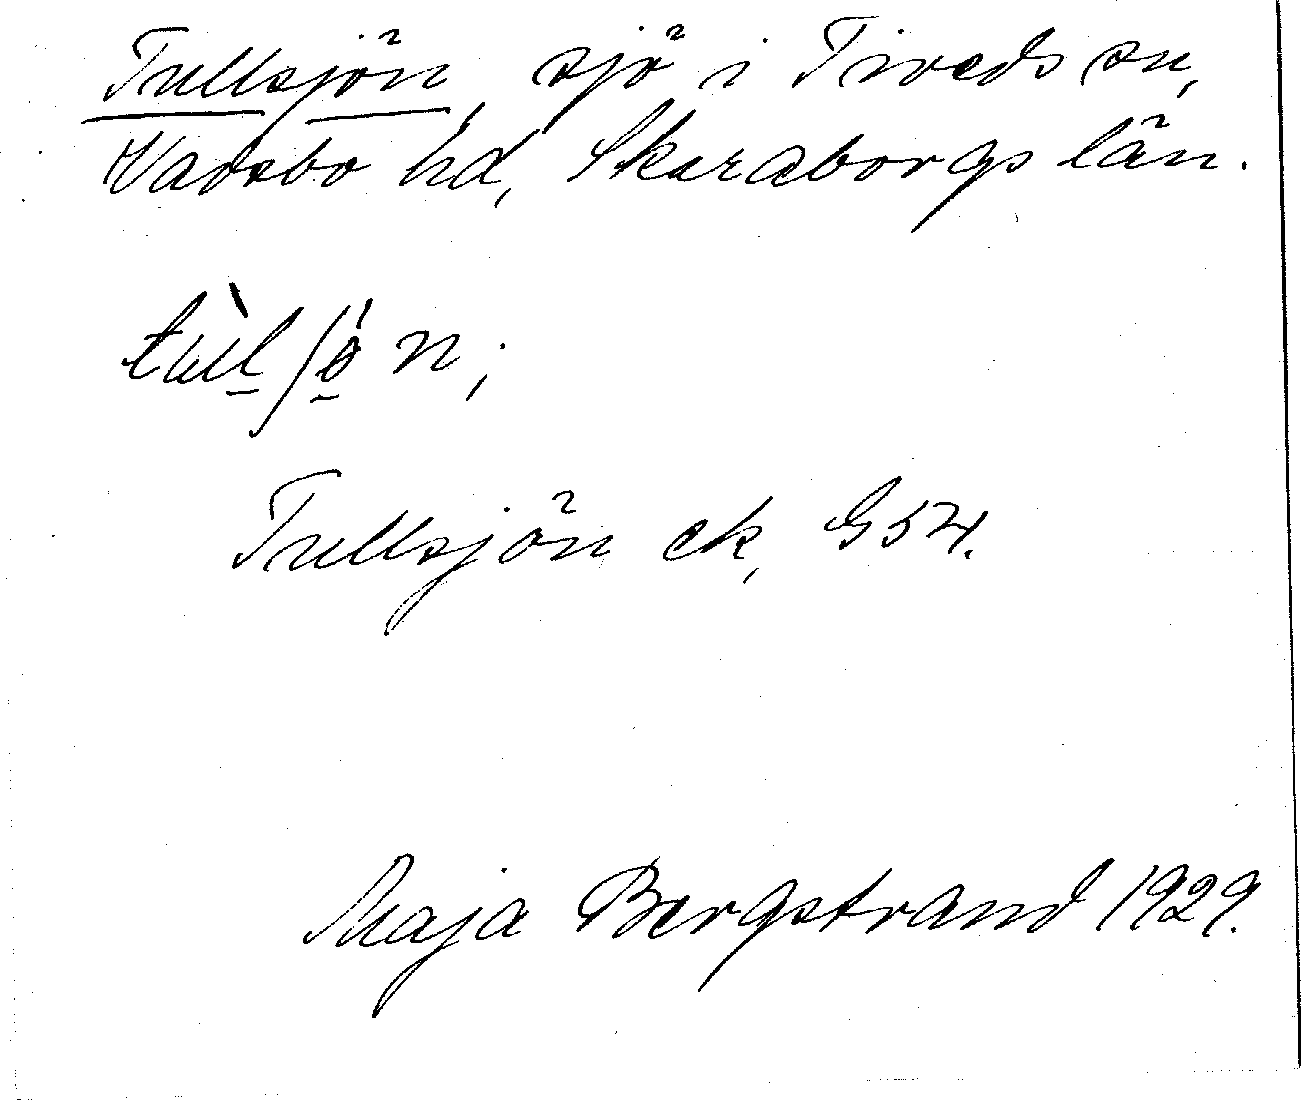 Tullsjön, sjö i Tiveds sn,
Vadsbo hd, Skaraborgs län.
tùl̲ʃö̲́n;
Tullsjön ek, G54.
Maja Bergstrand 1929.